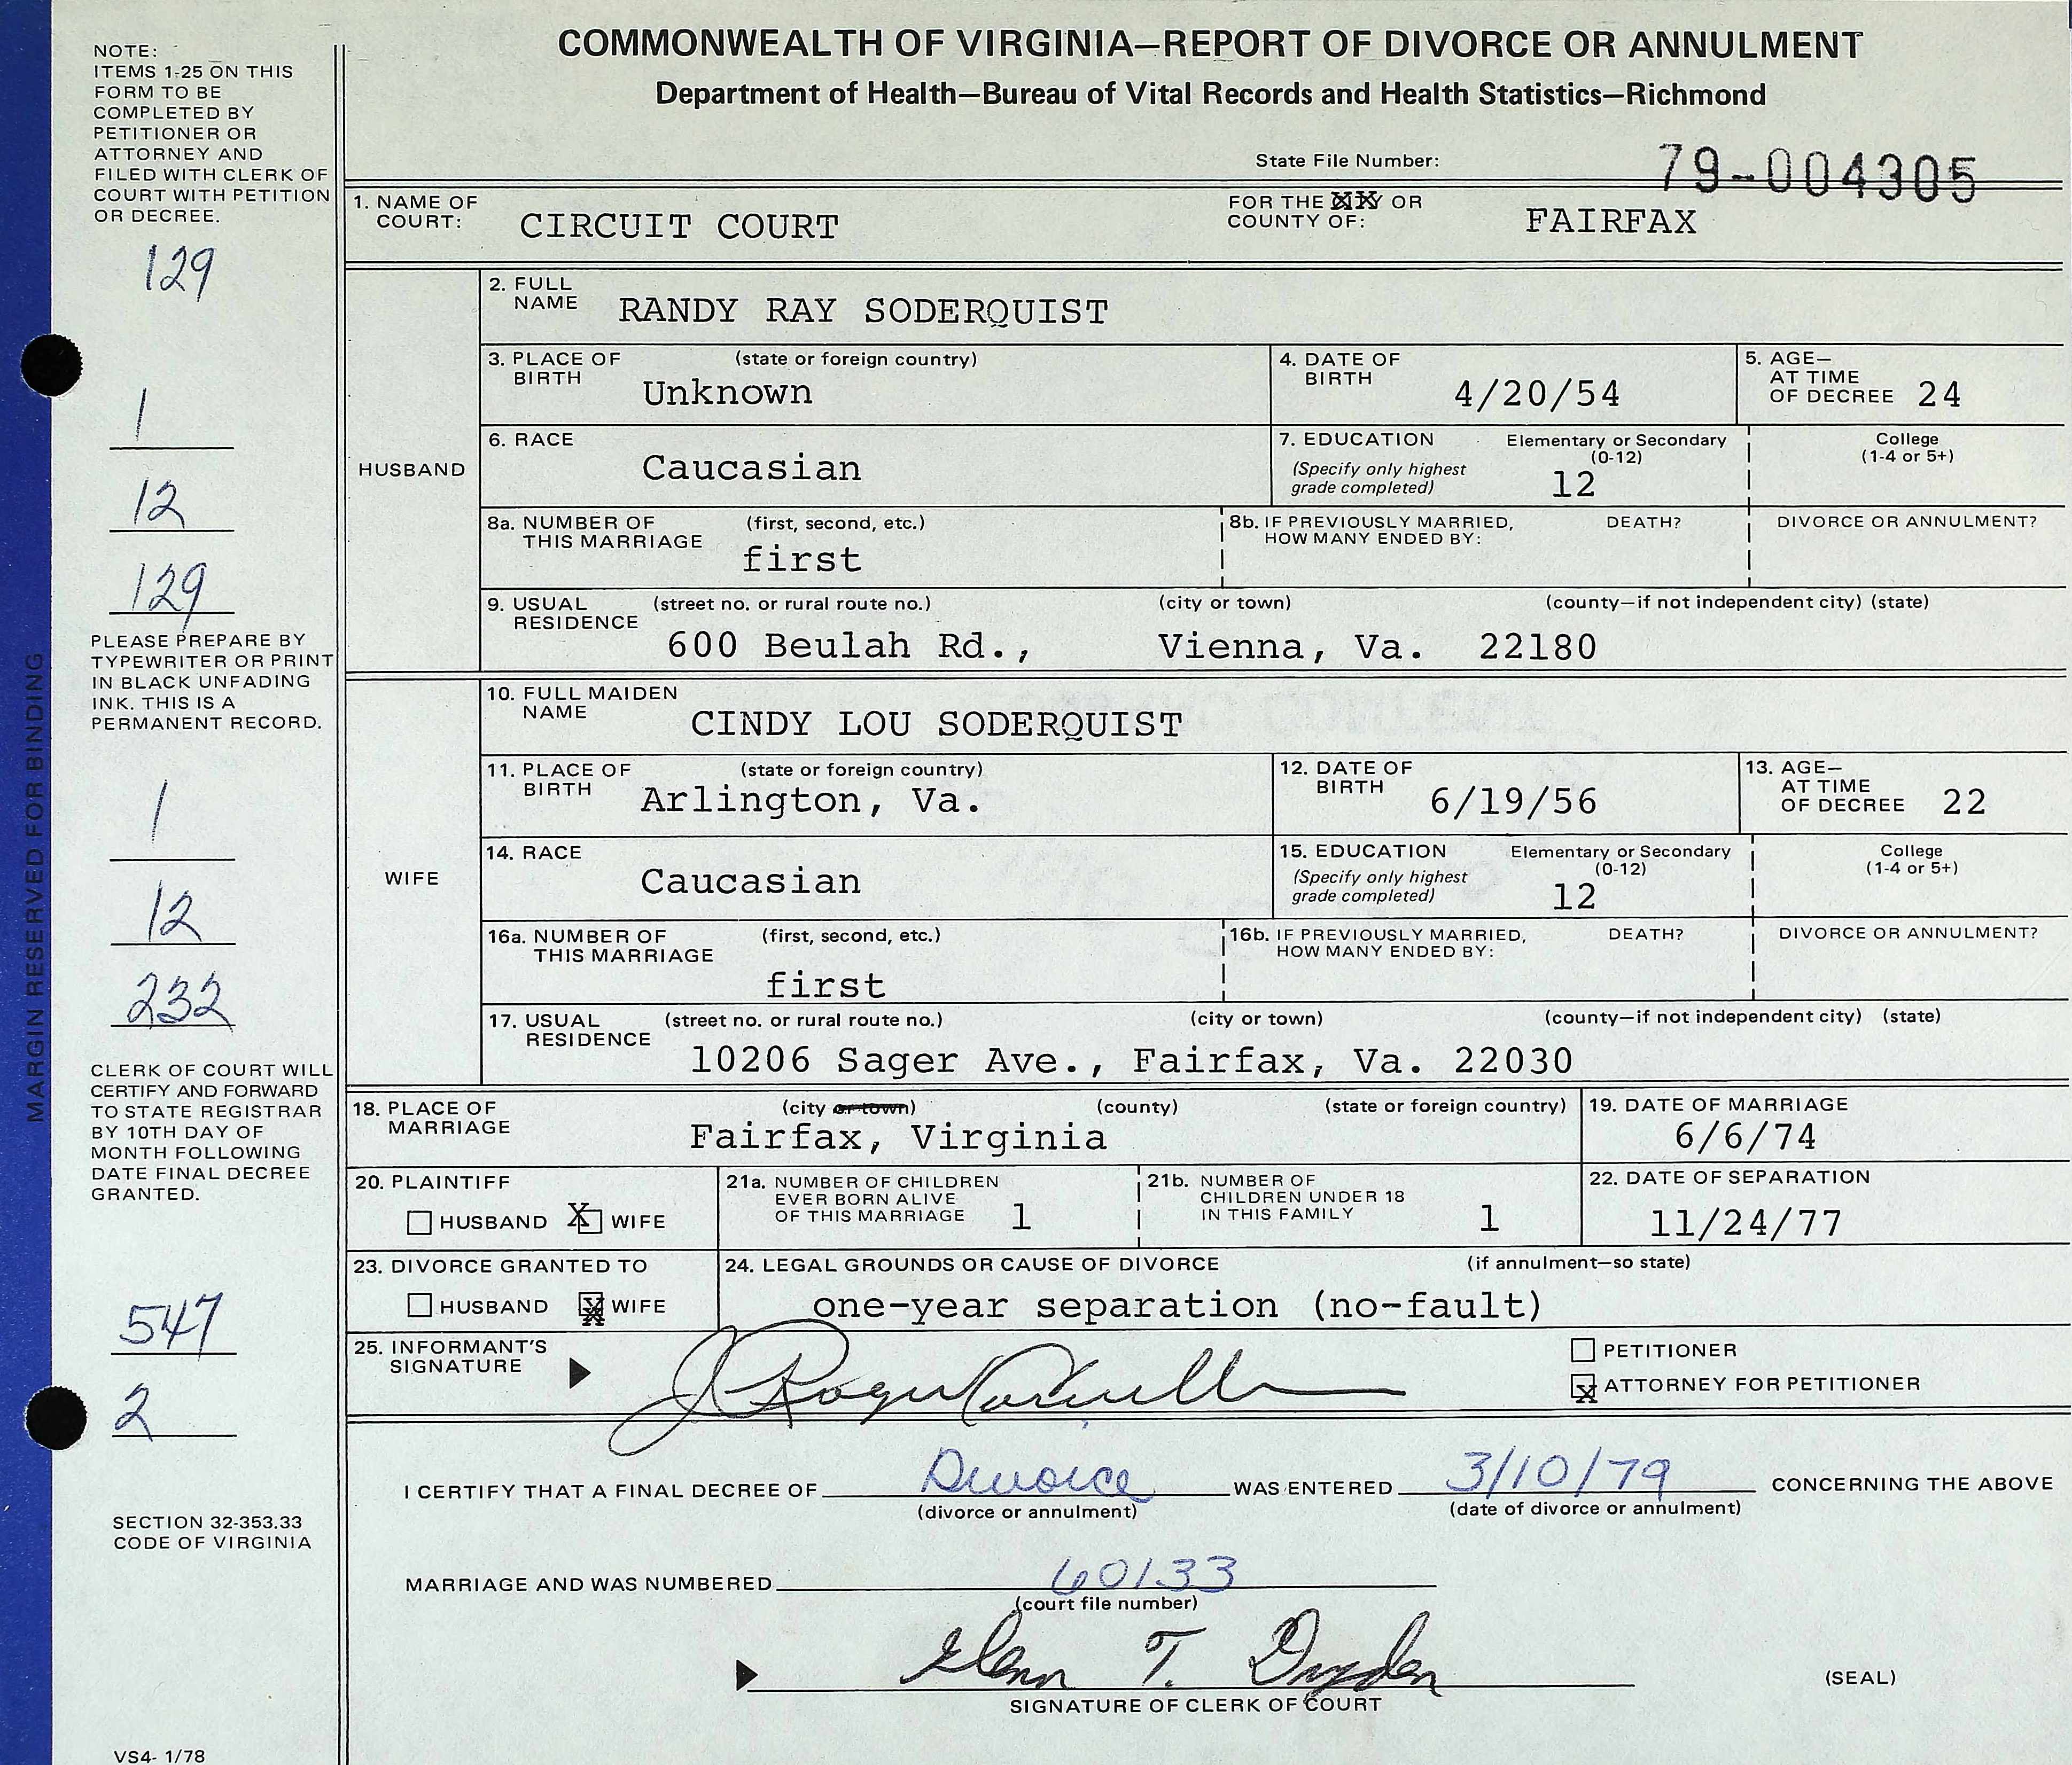 COMMONWEALTH OF VIRGINIA—REPORT OF DIVORCE OR ANNULMENT
Department of Health—Bureau of Vital Records and Health Statistics—Richmond
State File Number: 79-004305
NOTE:
ITEMS 1-25 ON THIS
FORM TO BE
COMPLETED BY
PETITIONER OR
ATTORNEY AND
FILED WITH CLERK OF
COURT WITH PETITION
OR DECREE.
129
1
12
129
PLEASE PREPARE BY
TYPEWRITER OR PRINT
IN BLACK UNFADING
INK. THIS IS A
PERMANENT RECORD.
1
12
232
CLERK OF COURT WILL
CERTIFY AND FORWARD
TO STATE REGISTRAR
BY 10TH DAY OF
MONTH FOLLOWING
DATE FINAL DECREE
GRANTED.
547
2
SECTION 32-353.33
CODE OF VIRGINIA
VS4- 1/78
MARGIN RESERVED FOR BINDING
1. NAME OF COURT: CIRCUIT COURT
FOR THE XXY OR COUNTY OF: FAIRFAX
HUSBAND
2. FULL NAME RANDY RAY SODERQUIST
3. PLACE OF BIRTH (state or foreign country) Unknown
4. DATE OF BIRTH 4/20/54
5. AGE— AT TIME OF DECREE 24
6. RACE Caucasian
7. EDUCATION (Specify only highest grade completed) Elementary or Secondary (0-12) 12
College (1-4 or 5+)
8a. NUMBER OF THIS MARRIAGE (first, second, etc.) first
8b. IF PREVIOUSLY MARRIED, HOW MANY ENDED BY: DEATH? DIVORCE OR ANNULMENT?
9. USUAL RESIDENCE (street no. or rural route no.) (city or town) (county—if not independent city) (state)
600 Beulah Rd., Vienna, Va. 22180
WIFE
10. FULL MAIDEN NAME CINDY LOU SODERQUIST
11. PLACE OF BIRTH (state or foreign country) Arlington, Va.
12. DATE OF BIRTH 6/19/56
13. AGE— AT TIME OF DECREE 22
14. RACE Caucasian
15. EDUCATION (Specify only highest grade completed) Elementary or Secondary (0-12) 12
College (1-4 or 5+)
16a. NUMBER OF THIS MARRIAGE (first, second, etc.) first
16b. IF PREVIOUSLY MARRIED, HOW MANY ENDED BY: DEATH? DIVORCE OR ANNULMENT?
17. USUAL RESIDENCE (street no. or rural route no.) (city or town) (county—if not independent city) (state)
10206 Sager Ave., Fairfax, Va. 22030
18. PLACE OF MARRIAGE (city or town) (county) (state or foreign country)
Fairfax, Virginia
19. DATE OF MARRIAGE 6/6/74
20. PLAINTIFF
HUSBAND X WIFE
21a. NUMBER OF CHILDREN EVER BORN ALIVE OF THIS MARRIAGE 1
21b. NUMBER OF CHILDREN UNDER 18 IN THIS FAMILY 1
22. DATE OF SEPARATION 11/24/77
23. DIVORCE GRANTED TO
HUSBAND X WIFE
24. LEGAL GROUNDS OR CAUSE OF DIVORCE (if annulment—so state)
one-year separation (no-fault)
25. INFORMANT'S SIGNATURE J. Roger
PETITIONER
X ATTORNEY FOR PETITIONER
I CERTIFY THAT A FINAL DECREE OF Divorce WAS ENTERED 3/10/79 CONCERNING THE ABOVE
(divorce or annulment) (date of divorce or annulment)
MARRIAGE AND WAS NUMBERED 60133
(court file number)
Glenn T. Dryden
SIGNATURE OF CLERK OF COURT
(SEAL)